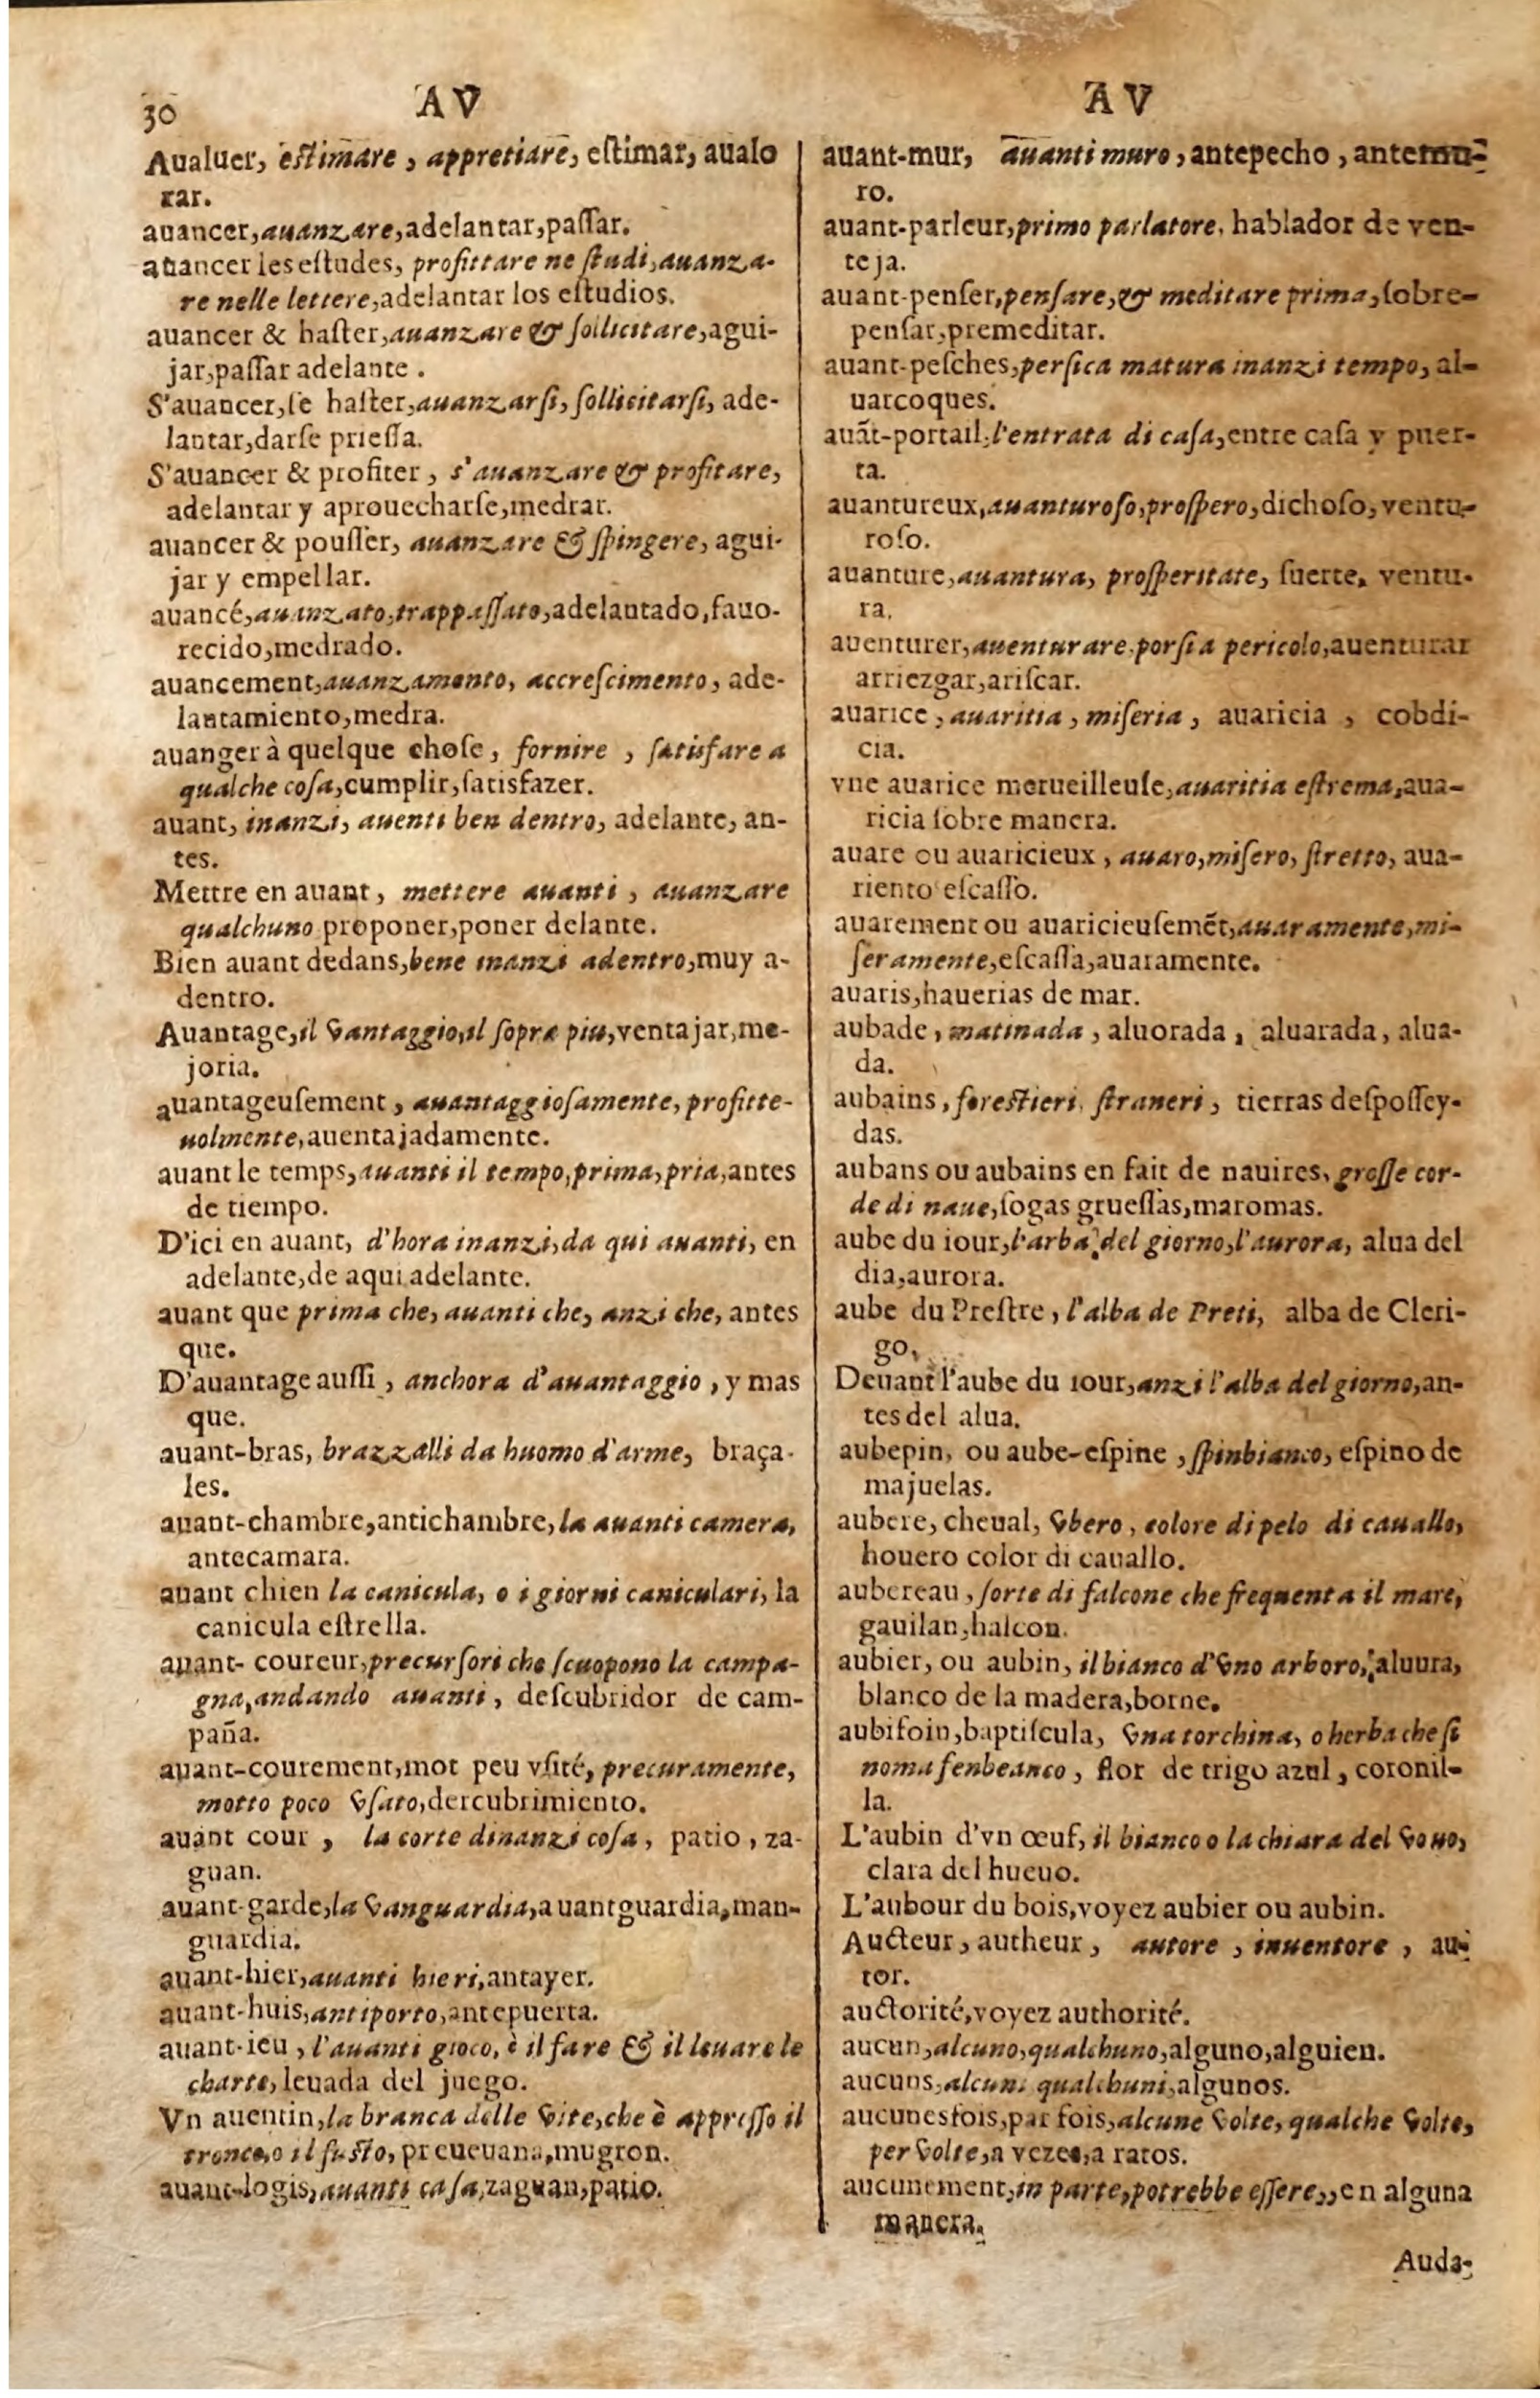 30
AV
AV
Aualuer, estimare, appretiare, estimar, aualo
rar.
auancer, auanzare, adelantar, passar.
auancer les estudes, profittare ne studi, auanza-
re nelle lettere, adelantar los estudios.
auancer & haster, auanzare & sollicitare, agui-
jar, passar adelante.
S'auancer, se haster, auanzarsi, sollicitarsi, ade-
lantar, darse priessa.
S'auancer & profiter, s'auanzare & profitare,
adelantar y aprouecharse, medrar.
auancer & pousser, auanzare & spingere, agui-
jar y empellar.
auancé, auanzato, trappassato, adelantado, fauo-
recido, medrado.
auancement, auanzamento, accrescimento, ade-
lantamiento, medra.
auanger à quelque chose, fornire, satisfare a
qualche cosa, cumplir, satisfazer.
auant, inanzi, auenti ben dentro, adelante, an-
tes.
Mettre en auant, mettere auanti, auanzare
qualchuno proponer, poner delante.
Bien auant dedans, bene inanzi adentro, muy a-
dentro.
Auantage, il vantaggio, il sopra piu, ventajar, me-
joria.
auantageusement, auantaggiosamente, profitte-
uolmente, auentajadamente.
auant le temps, auanti il tempo, prima, pria, antes
de tiempo.
D'ici en auant, d'hora inanzi, da qui auanti, en
adelante, de aqui adelante.
auant que prima che, auanti che, anzi che, antes
que.
D'auantage aussi, anchora d'auantaggio, y mas
que.
auant-bras, brazzalli da huomo d'arme, braça-
les.
auant-chambre, antichambre, la auanti camera,
antecamara.
auant chien la canicula, o i giorni caniculari, la
canicula estrella.
auant- coureur, precursori che scuopono la campa-
gna, andando auanti, descubridor de cam-
paña.
auant-courement, mot peu vsité, precuramente,
motto poco vsato, dercubrimiento.
auant cour, la corte dinanzi cosa, patio, za-
guan.
auant-garde, la vanguardia, auantguardia, man-
guardia.
auant-hier, auanti hieri, antayer.
auant-huis, antiporto, antepuerta.
auant-ieu, l'auanti gioco, è il fare & il leuare le
charte, leuada del juego.
Vn auentin, la branca delle vite, che è appresso il
tronco, o il fusto, preueuana, mugron.
auant-logis, auanti casa, zaguan, patio.
auant-mur, auanti muro, antepecho, antemu-
ro.
auant-parleur, primo parlatore, hablador de ven-
teja.
auant-penser, pensare, & meditare prima, sobre-
pensar, premeditar.
auant-pesches, persica matura inanzi tempo, al-
uarcoques.
auãt-portail, l'entrata di casa, entre casa y puer-
ta.
auantureux, auanturoso, prospero, dichoso, ventu-
roso.
auanture, auantura, prosperitate, suerte, ventu-
ra.
auenturer, auenturare, porsi a pericolo, auenturar
arriezgar, ariscar.
auarice, auaritia, miseria, auaricia, cobdi-
cia.
vne auarice merueilleuse, auaritia estrema, aua-
ricia sobre manera.
auare ou auaricieux, auaro, misero, stretto, aua-
riento escasso.
auarement ou auaricieusemẽt, auaramente, mi-
seramente, escassa, auaramente.
auaris, hauerias de mar.
aubade, matinada, aluorada, aluarada, alua-
da.
aubains, forestieri, straneri, tierras despossey-
das.
aubans ou aubains en fait de nauires, grosse cor-
de di naue, sogas gruessas, maromas.
aube du iour, l'arba del giorno, l'aurora, alua del
dia, aurora.
aube du Prestre, l'alba de Preti, alba de Cleri-
go.
Deuant l'aube du iour, anzi l'alba del giorno, an-
tes del alua.
aubepin, ou aube-espine, spinbianco, espino de
majuelas.
aubere, cheual, vbero, colore di pelo di cauallo,
houero color di cauallo.
aubereau, sorte di falcone che frequenta il mare,
gauilan, halcon.
aubier, ou aubin, il bianco d'vno arboro, aluura,
blanco de la madera, borne.
aubifoin, baptiscula, vna torchina, o herba che si
noma fenbeanco, flor de trigo azul, coronil-
la.
L'aubin d'vn œuf, il bianco o la chiara del vouo,
clara del hueuo.
L'aubour du bois, voyez aubier ou aubin.
Aucteur, autheur, autore, inuentore, au-
tor.
auctorité, voyez authorité.
aucun, alcuno, qualchuno, alguno, alguien.
aucuns, alcuni qualchuni, algunos.
aucunesfois, par fois, alcune volte, qualche volte,
per volte, a vezes, a ratos.
aucunement, in parte, potrebbe essere,, en alguna
manera.
Auda-